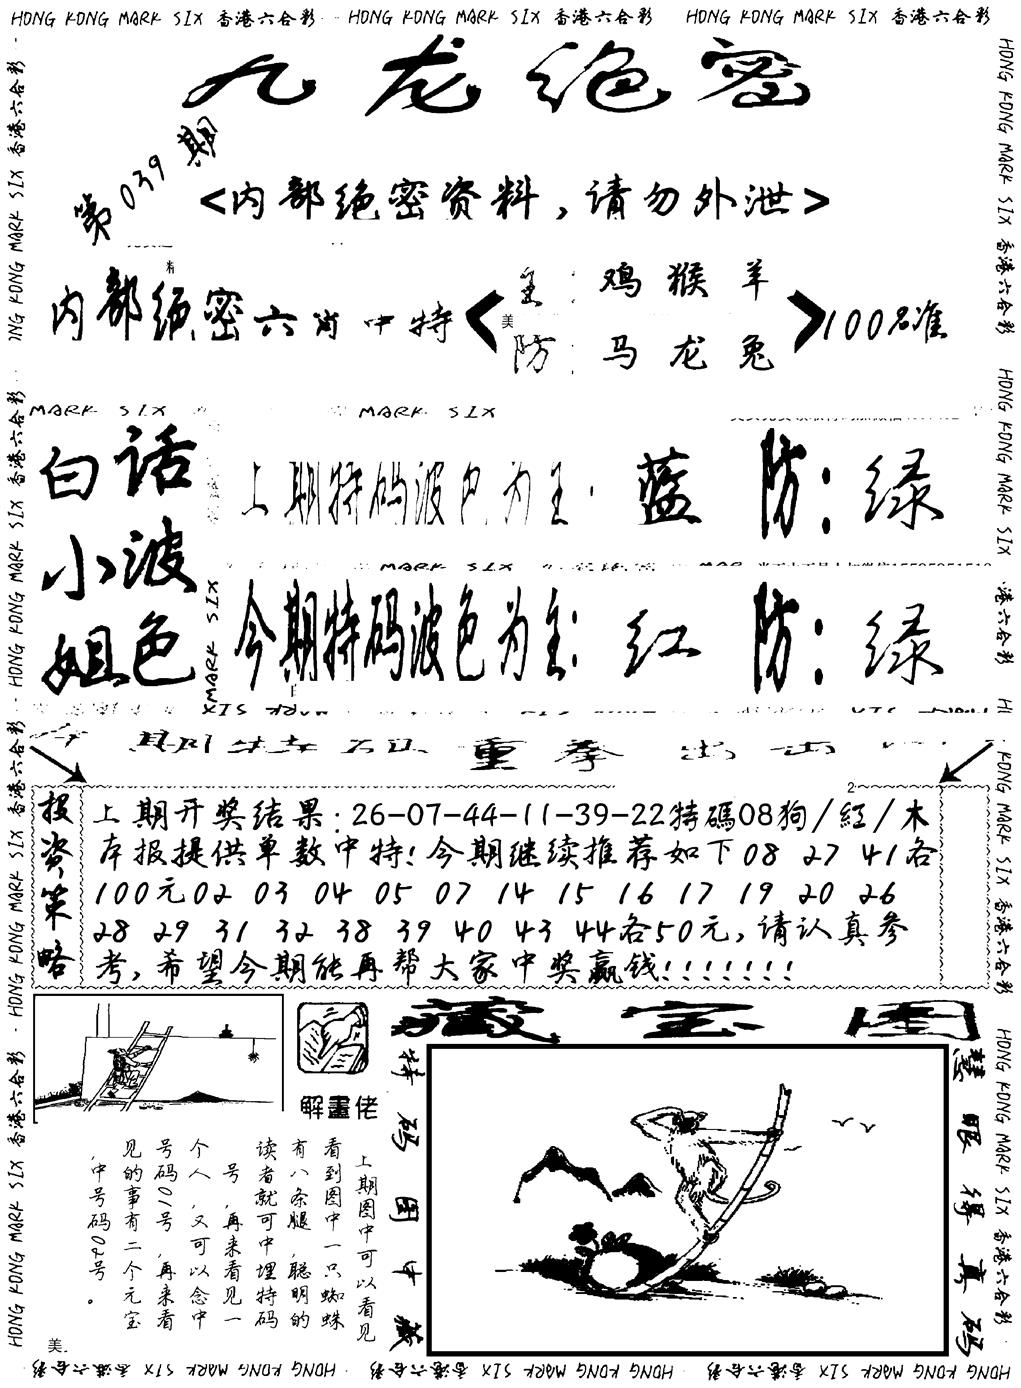 HONG KONG MARK SIX 香港六合彩 HONG KONG MARK SIX 香港六合彩 HONG KONG MARK SIX 香港六合彩
九龙绝密
第039期
<内部绝密资料,请勿外泄>
内部绝密六肖中特
主: 鸡猴羊
防: 马龙兔
100%准
MARK SIX MARK SIX
白话小波姐色
上期特码波色为主: 蓝 防: 绿
今期特码波色为主: 红 防: 绿
今期特码重拳出击
投资策略
上期开奖结果:26-07-44-11-39-22特碼08狗/紅/木
本报提供单数中特!今期继续推荐如下08 27 41各
100元02 03 04 05 07 14 15 16 17 19 20 26
28 29 31 32 38 39 40 43 44各50元,请认真参
考,希望今期能再帮大家中奖赢钱!!!!!!!
藏宝图
解畫佬
特码图中藏
慧眼得真码
上期图中可以看见
看到图中一只蜘蛛
有八条腿,聪明的
读者就可中埋特码
号,再来看见一
个人,又可以念中
号码01号,再来看
见的事有二个元宝
,中号码020号。
美
HONG KONG MARK SIX 香港六合彩 HONG KONG MARK SIX 香港六合彩 HONG KONG MARK SIX 香港六合彩